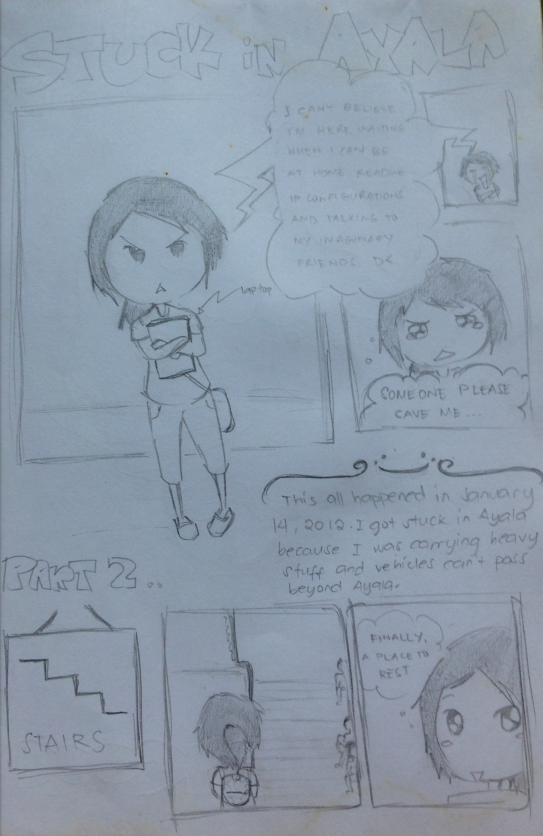 STUCK in AYALA
I CAN'T BELIEVE
I'M HERE WAITING
WHEN I CAN BE
AT HOME READING
IP CONFIGURATIONS
AND TALKING TO
MY IMAGINARY
FRIENDS. D<
laptop
SOMEONE PLEASE
CAVE ME...
This all happened in January
14, 2012. I got stuck in Ayala
because I was carrying heavy
stuff and vehicles can't pass
beyond Ayala.
PART 2..
STAIRS
FINALLY,
A PLACE TO
REST